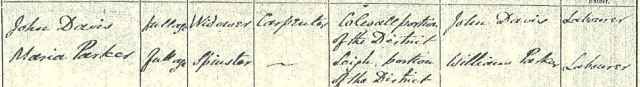 John Davis full age Widower Carpenter Colwall portion of the District John Davis Labourer
Maria Parker full age Spinster ~ Leigh portion of the District William Parker Labourer